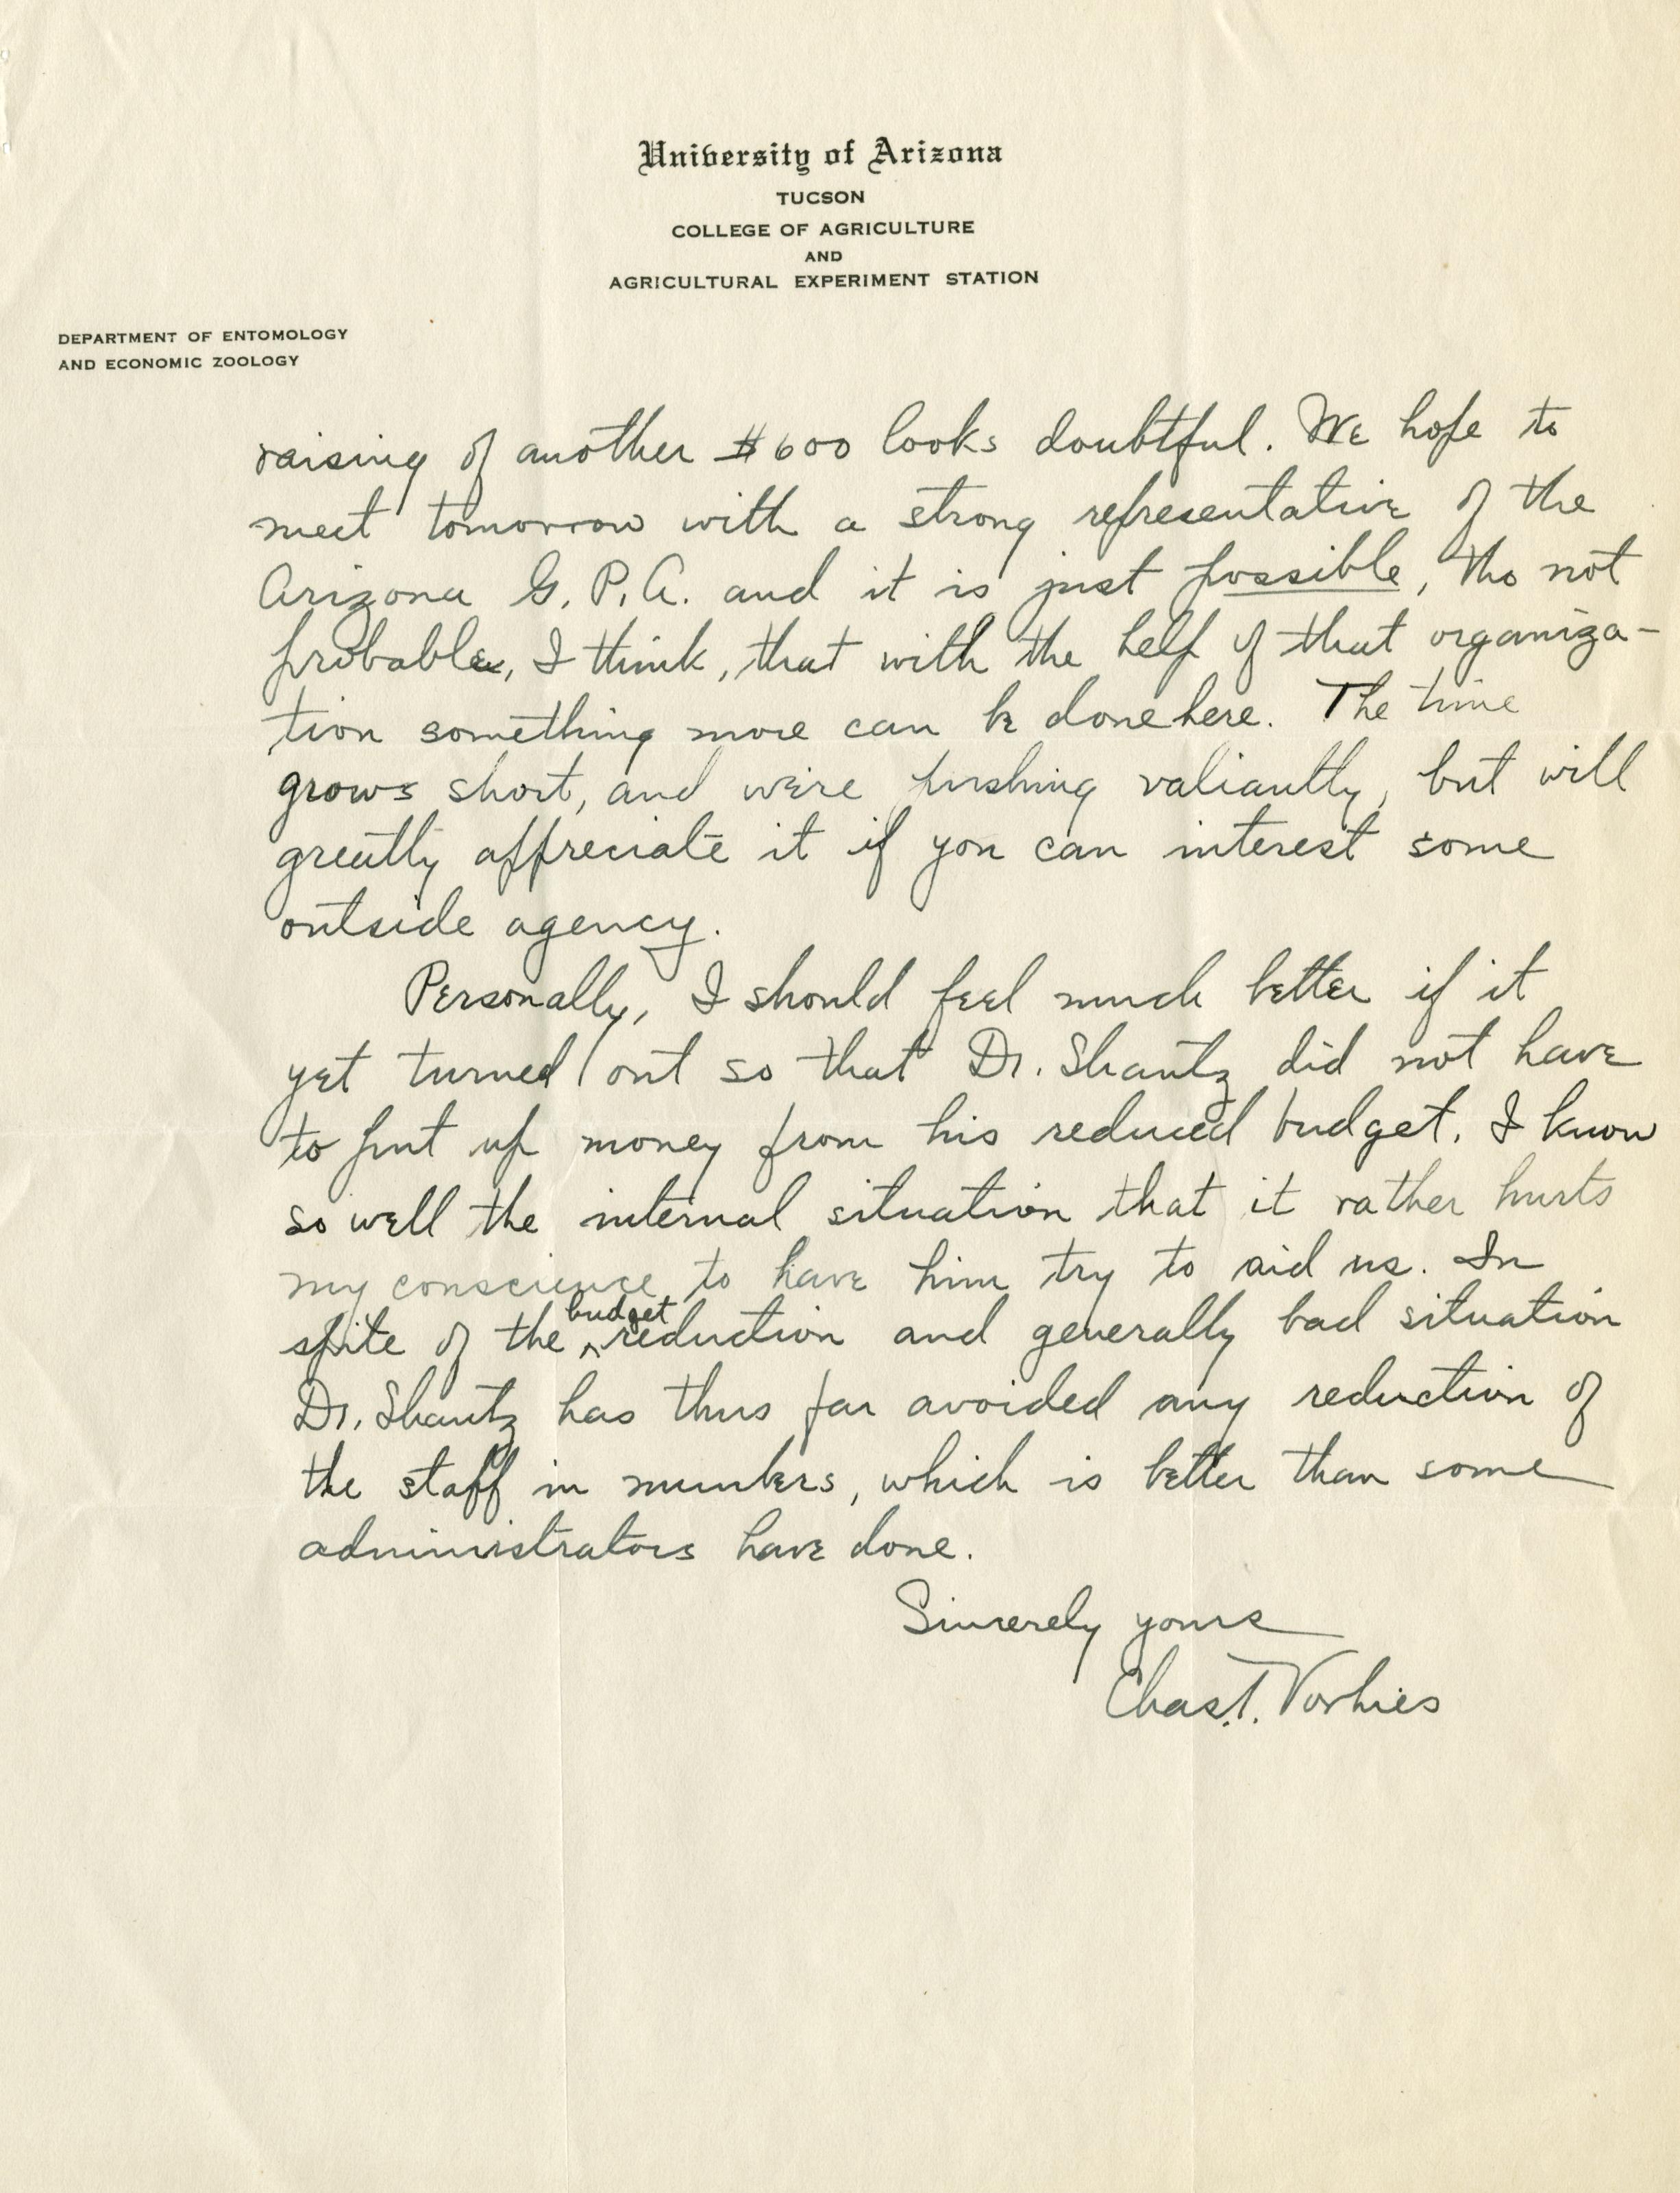 University of Arizona
TUCSON
COLLEGE OF AGRICULTURE
AND
AGRICULTURAL EXPERIMENT STATION
DEPARTMENT OF ENTOMOLOGY
AND ECONOMIC ZOOLOGY
raising of another $600 looks doubtful. We hope to
meet tomorrow with a strong representative of the
Arizona G. P. A. and it is just possible, tho not
probable, I think, that with the help of that organiza-
tion something more can be done here. The time
grows short, and we're pushing valiantly, but will
greatly appreciate it if you can interest some
outside agency.
Personally, I should feel much better if it
yet turned out so that Dr. Shantz did not have
to put up money from his reduced budget. I know
so well the internal situation that it rather hurts
my conscience to have him try to aid us. In
spite of the budget reduction and generally bad situation
Dr. Shantz has thus far avoided any reduction of
the staff in numbers, which is better than some
administrators have done.
Sincerely yours
Chas. T. Vorhies